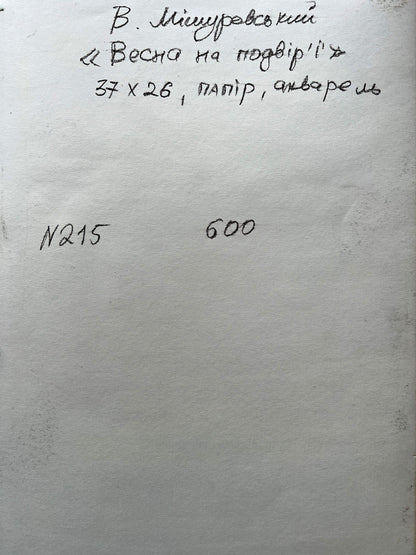 В. Мішуровський
« Весна на подвір'ї »
37 х 26, папір, акварель
N215 600